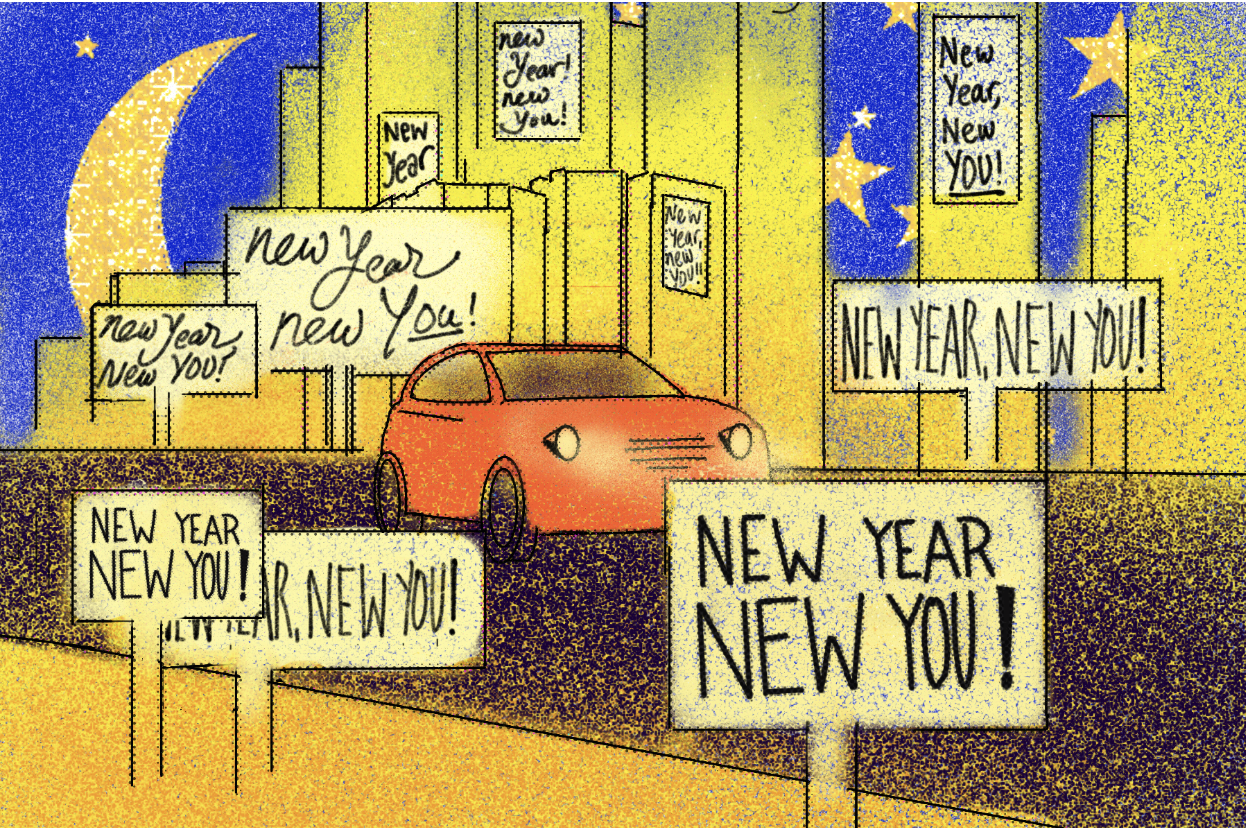 new
Year!
new
you!
New
Year
New
Year,
New
YOU!
New
Year,
new
YOU!!
new Year
new You!
new Year
New YOU!
NEW YEAR, NEW YOU!
NEW YEAR
NEW YOU!
EAR, NEW YOU!
NEW YEAR
NEW YOU!